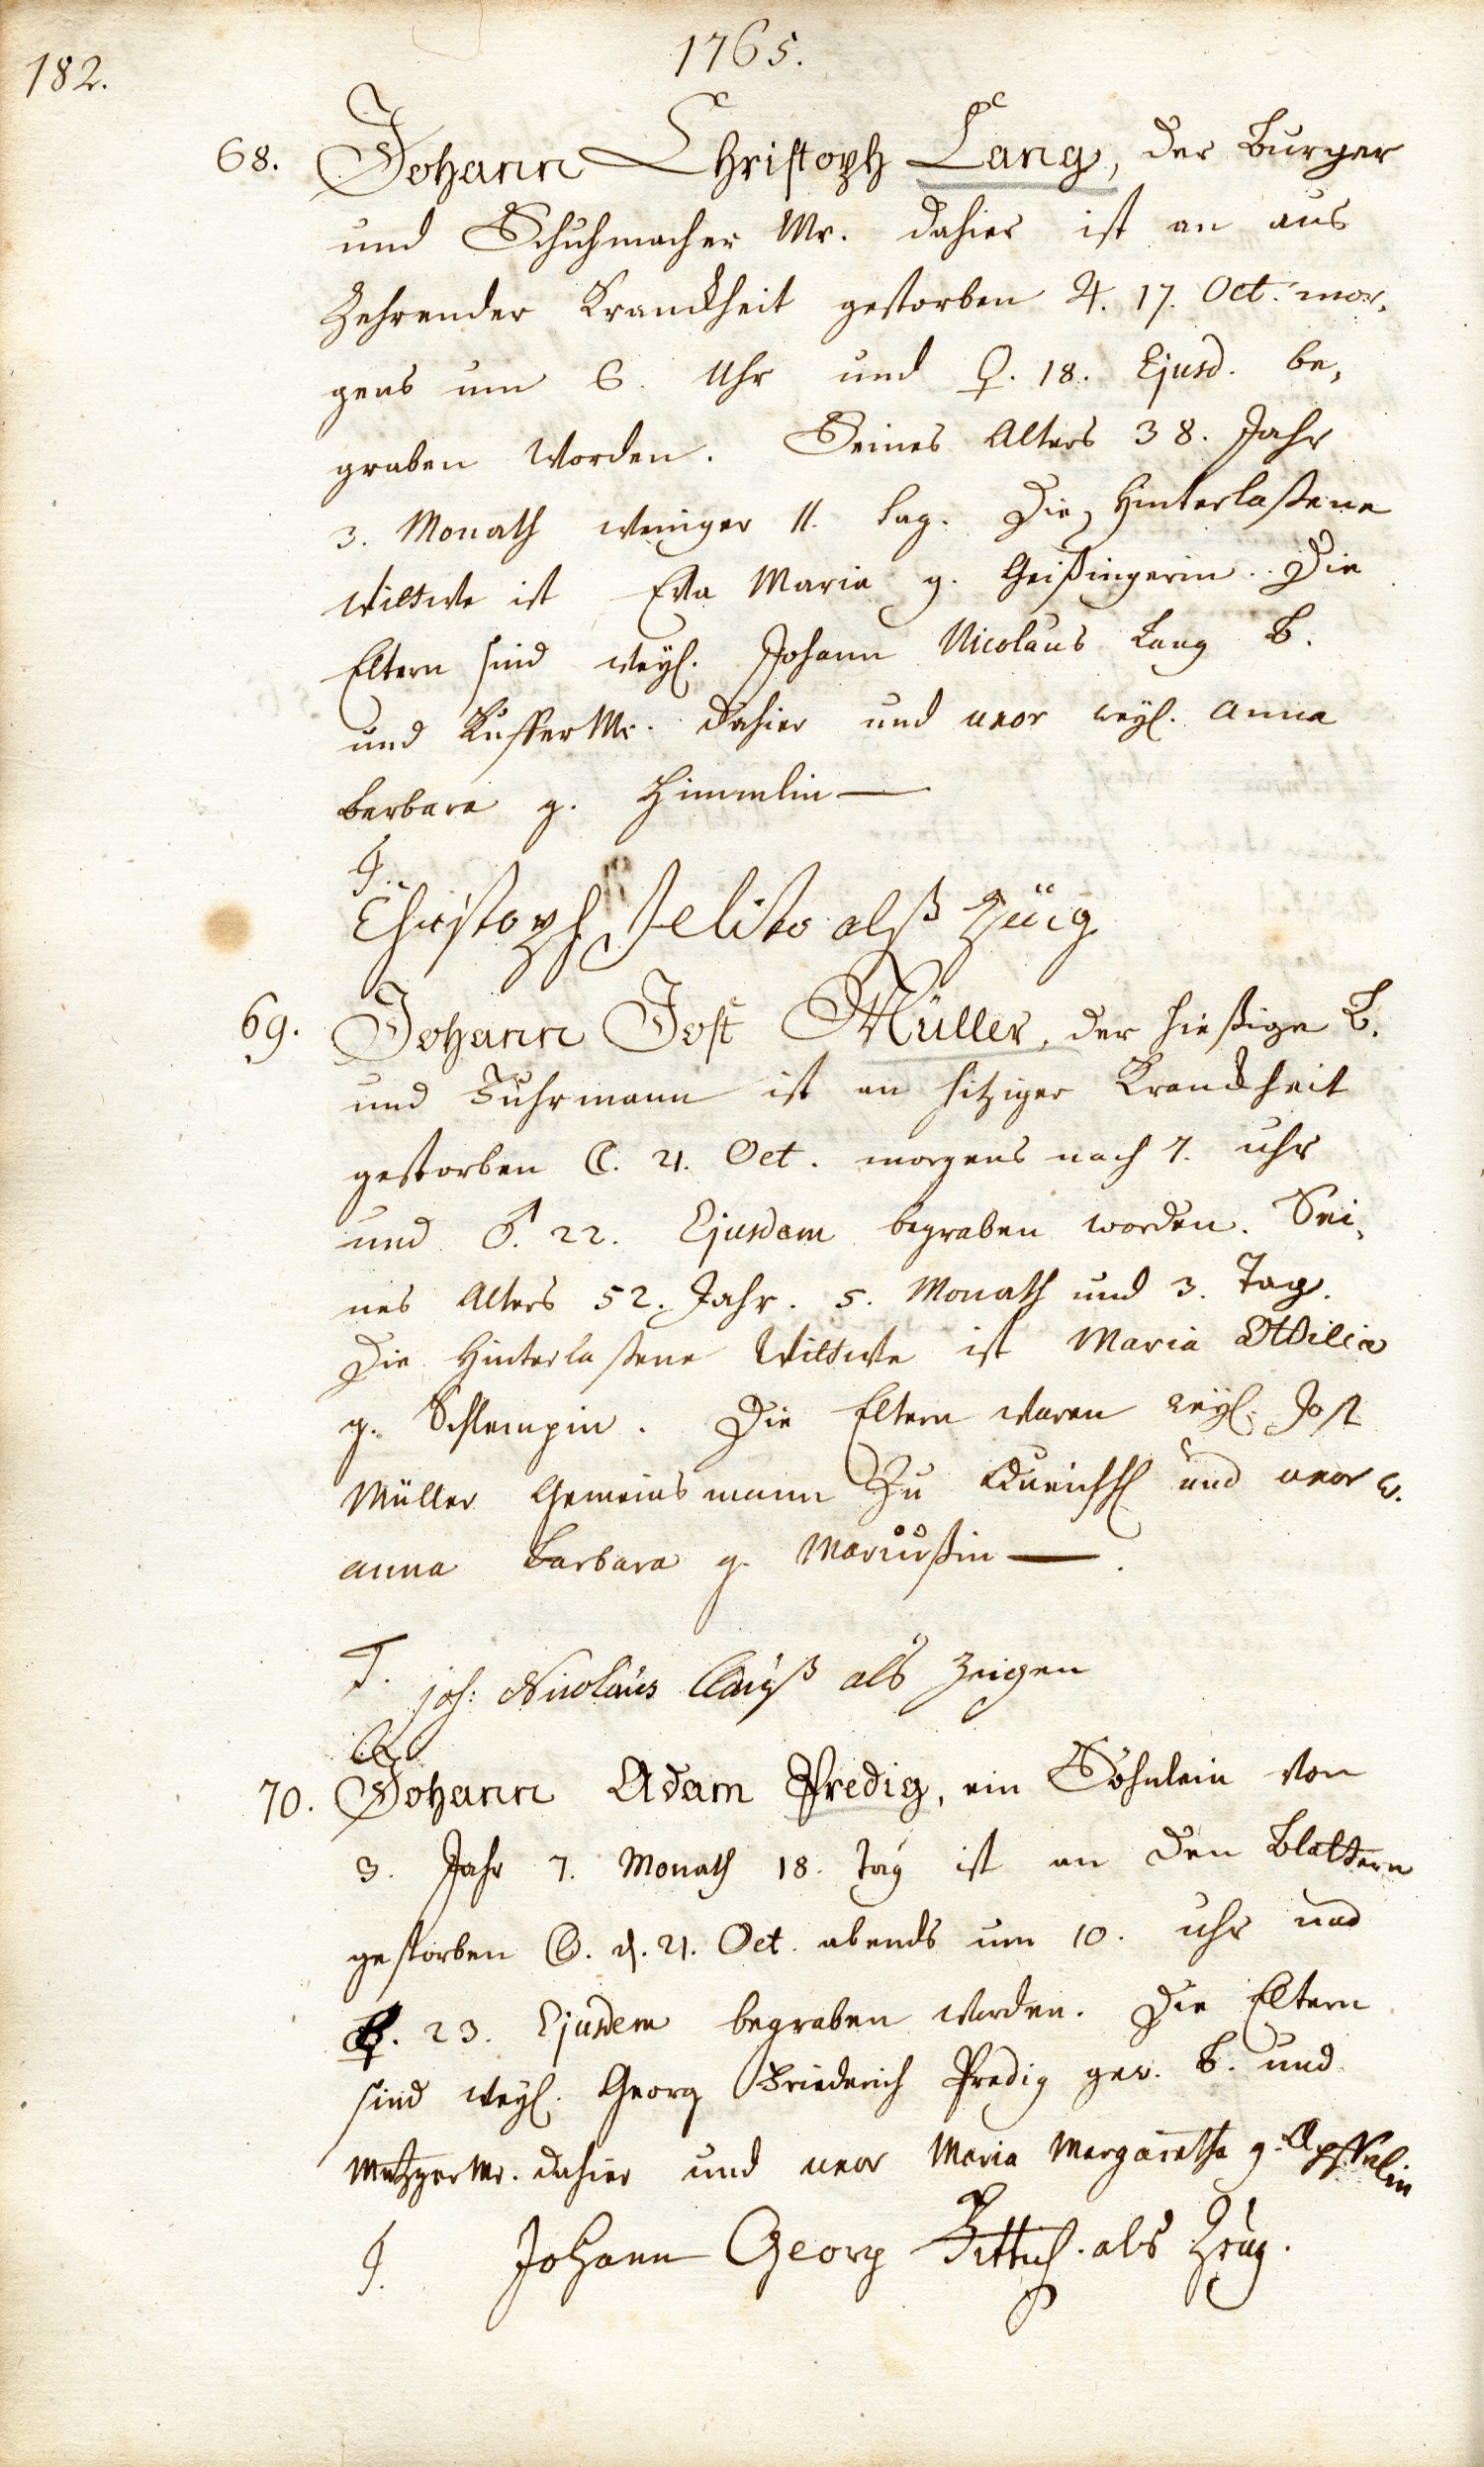 182.
1765.
68. Johann Christoph Lang, der Burger
und Schuhmacher Mr. dahier ist an aus
Zehrender Kranckheit gestorben ♃. 17. Oct. mor,
gens um 6. Uhr und ♀. 18. Ejusd. be,
graben worden. Seines Alters 38. Jahr
3. Monath weniger 11. Tag. Die Hinterlaßene
Wittwe ist Eva Maria g. Geißingerin. Die
Eltern sind weyl. Johann Nicolaus Lang B.
und Kuffer Mr. dahier und uxor weyl. Anna
Barbara g. Himmlin —
T.
Christoph alß Züig
69. Johann Jost Müller, der hießige B.
und Fuhrmann ist an hitziger Kranckheit
gestorben ☾. 21. Oct. morgens nach 7. uhr
und ♂. 22. Ejusdem begraben worden. Sei,
nes Alters 52. Jahr. 5. Monath und 3. Tag.
Die Hinterlaßene Wittwe ist Maria Ottilia
g. Schlempin. Die Eltern waren weyl. Jost
Müller Gemeinsmann Zu Queichh und uxor w.
Anna Barbara g. —.
T. Joh: Nicolaus Clauß als Zeigen
70. Johann Adam Predig, ein Söhnlein von
3. Jahr 7. Monath 18. Tag ist an den Blattern
gestorben ☾. d. 21. Oct. abends um 10. uhr und
☿. 23. Ejusdem begraben worden. Die Eltern
sind weyl. Georg Friederich Predig gew. B. und
Metzger Mr. dahier und uxor Maria Margaretha g. Apffelin
T. Johann Georg als Zeug.